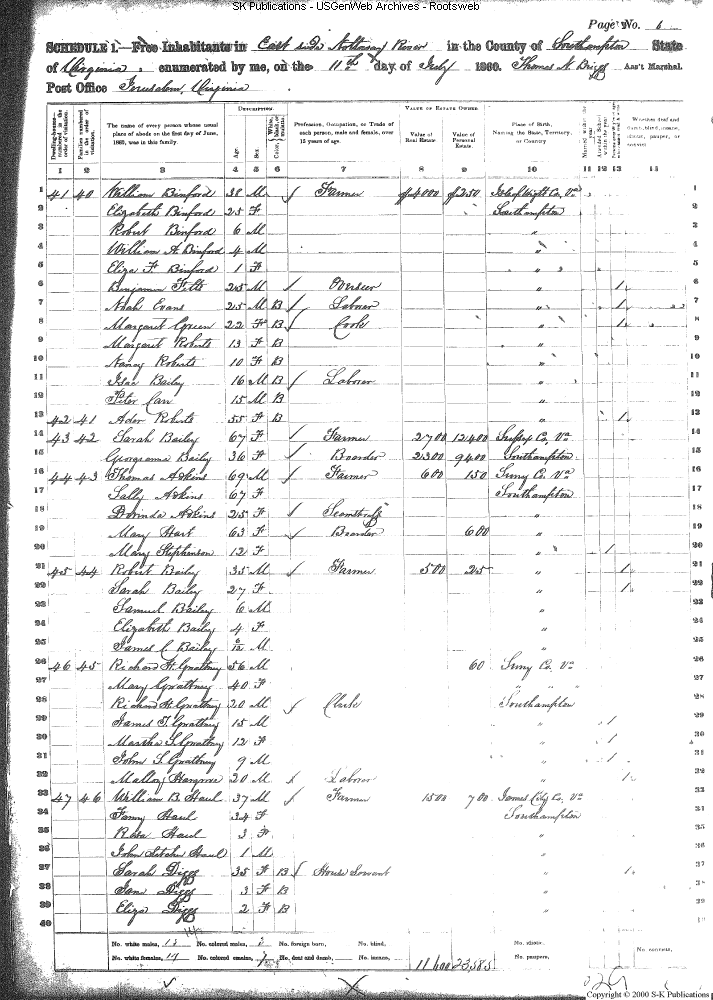 SK Publications - USGenWeb Archives - Rootsweb
Page No. 6
SCHEDULE 1.—Free Inhabitants in East side Nottoway River in the County of Southampton State
of Virginia, enumerated by me, on the 11th day of July 1860. Thomas N. Briggs Ass't Marshal.
Post Office Jerusalem, Virginia
DESCRIPTION. VALUE OF ESTATE OWNED.
Dwelling-houses—numbered in the order of visitation. Families numbered in the order of visitation. The name of every person whose usual place of abode on the first day of June, 1860, was in this family. Age. Sex. Color, White, black, or mulatto. Profession, Occupation, or Trade of each person, male and female, over 15 years of age. Value of Real Estate. Value of Personal Estate. Place of Birth, Naming the State, Territory, or Country Married within the year. Attended School within the year. Whether deaf and dumb, blind, insane, idiotic, pauper, or convict
1 2 3 4 5 6 7 8 9 10 11 12 13 14
1 41 40 William Binford 38 M / Farmer $4000 $250 Isle of Wight Co, Va 1
2 Elizabeth Binford 25 F Southampton 2
3 Robert Binford 6 M " 3
4 William A. Binford 4 M " 4
5 Eliza F. Binford 1 F " 5
6 Benjamin Fitts 25 M / Overseer " / 6
7 Noah Evans 25 M B / Laborer " / 7
8 Margaret Green 22 F B / Cook " / 8
9 Margaret Roberts 13 F B " 9
10 Nancy Roberts 10 F B " 10
11 Bailey 16 M B / Laborer " 11
12 Peter Carr 15 M B 12
13 42 41 Roberts 55 F B " / 13
14 43 42 Sarah Bailey 67 F / Farmer 2700 12400 Sussex Co, Va 14
15 Georganna Bailey 36 F / Boarder 2300 9400 Southampton 15
16 44 43 Thomas Adkins 69 M / Farmer 600 150 Surry Co. Va 16
17 Sally Adkins 67 F Southampton 17
18 Dorinda Adkins 25 F / Seamstress " 18
19 Mary Hart 63 F / Boarder 600 " 19
20 Mary Stephenson 12 F " / 20
21 45 44 Robert Bailey 35 M / Farmer 500 25 " / 21
22 Sarah Bailey 27 F " / 22
23 Samuel Bailey 6 M " 23
24 Elizabeth Bailey 4 F " 24
25 James C Bailey M " 25
26 46 45 Richard H. Gwaltney 56 M 60 Surry Co. Va 26
27 Mary Gwaltney 40 F " " " 27
28 Richard H. Gwaltney 20 M / Clerk Southampton 28
29 James T. Gwaltney 15 M " / 29
30 Martha S. Gwaltney 12 F " / 30
31 John S. Gwaltney 9 M " / 31
32 Mallory Hargrove 20 M / Laborer " / 32
33 47 46 William B. Haul 37 M / Farmer 1500 700 James City Co, Va
34 Fanny Haul 34 F Southampton
35 Rosa Haul 3 F "
36 John Letcher Haul 1 M "
37 Sarah Diggs 35 F B / House Servant " /
38 Diggs 3 F B "
39 Eliza Diggs 2 F B "
40
No. white males, No. colored males, 3 No. foreign born, No. blind, No. idiotic, No. convicts,
No. white females, No. colored females, No. deaf and dumb, No. insane, 11600 23,585 No. paupers,
Copyright © 2000 S-K Publications